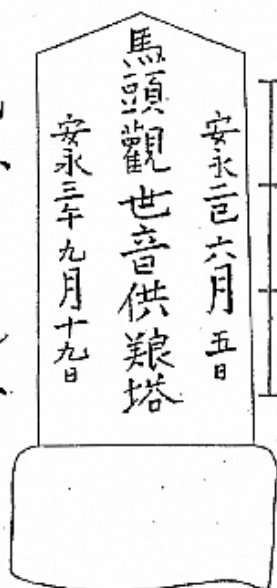 安永二巳六月五日
馬頭觀世音供養塔
安永三午九月十九日